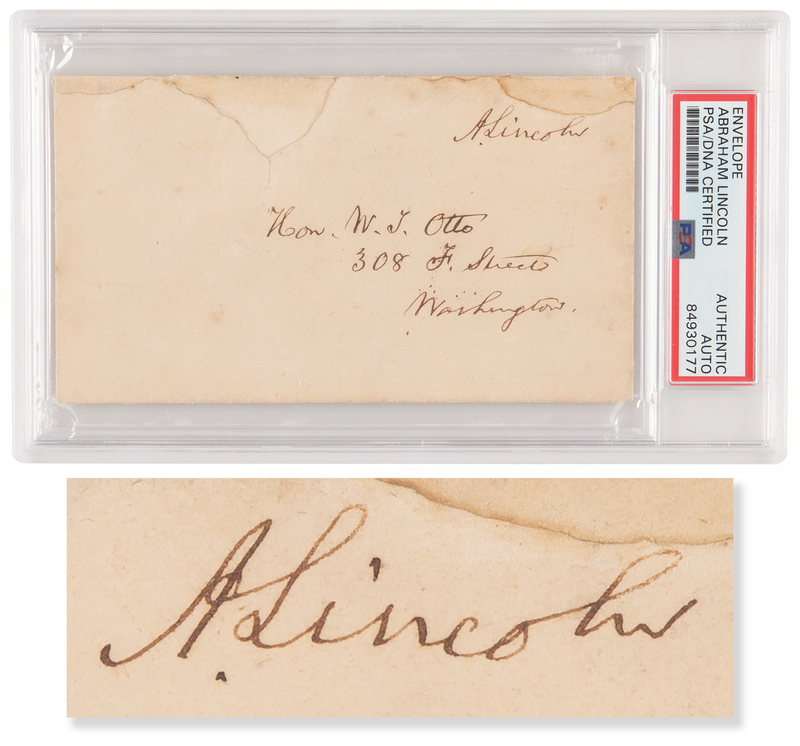 A. Lincoln
Hon. W. T. Otto
308 F. Street
Washington.
ENVELOPE
ABRAHAM LINCOLN
PSA/DNA CERTIFIED
PSA
AUTHENTIC
AUTO
84930177
A. Lincoln